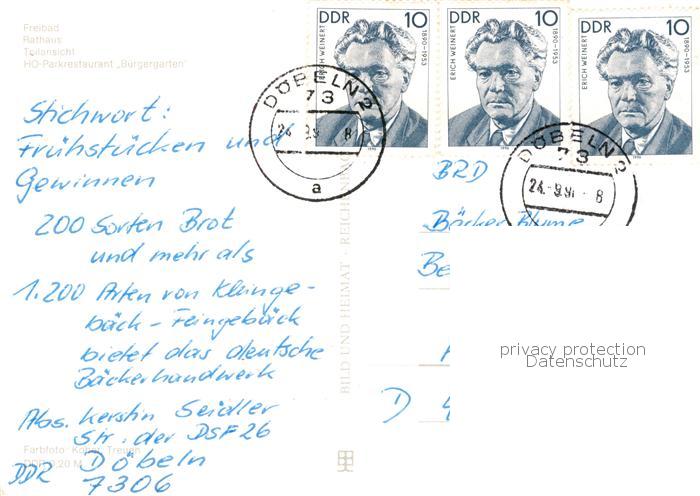 Freibad
Rathaus
Teilansicht
HO-Parkrestaurant „Bürgergarten"
DDR 10
ERICH WEINERT 1890-1953
DDR 10
ERICH WEINERT 1890-1953
DDR 10
1890-1953
DÖBELN 2
73
24. 9.9 8
a
DÖBELN 2
73
24.-9.9 - 8
Stichwort:
Frühstücken und
Gewinnen
200 Sorten Brot
und mehr als
1.200 Arten von Kleinge-
bäck - Feingebäck
bietet das deutsche
Bäckerhandwerk
Abs. Kerstin Seidler
Str. der DSF 26
Döbeln
DDR 7306
Farbfoto:
DDR 0,20 M
BILD UND HEIMAT · REICHEN
BRD
Bäcker Blume
Be
D 4
privacy protection
Datenschutz